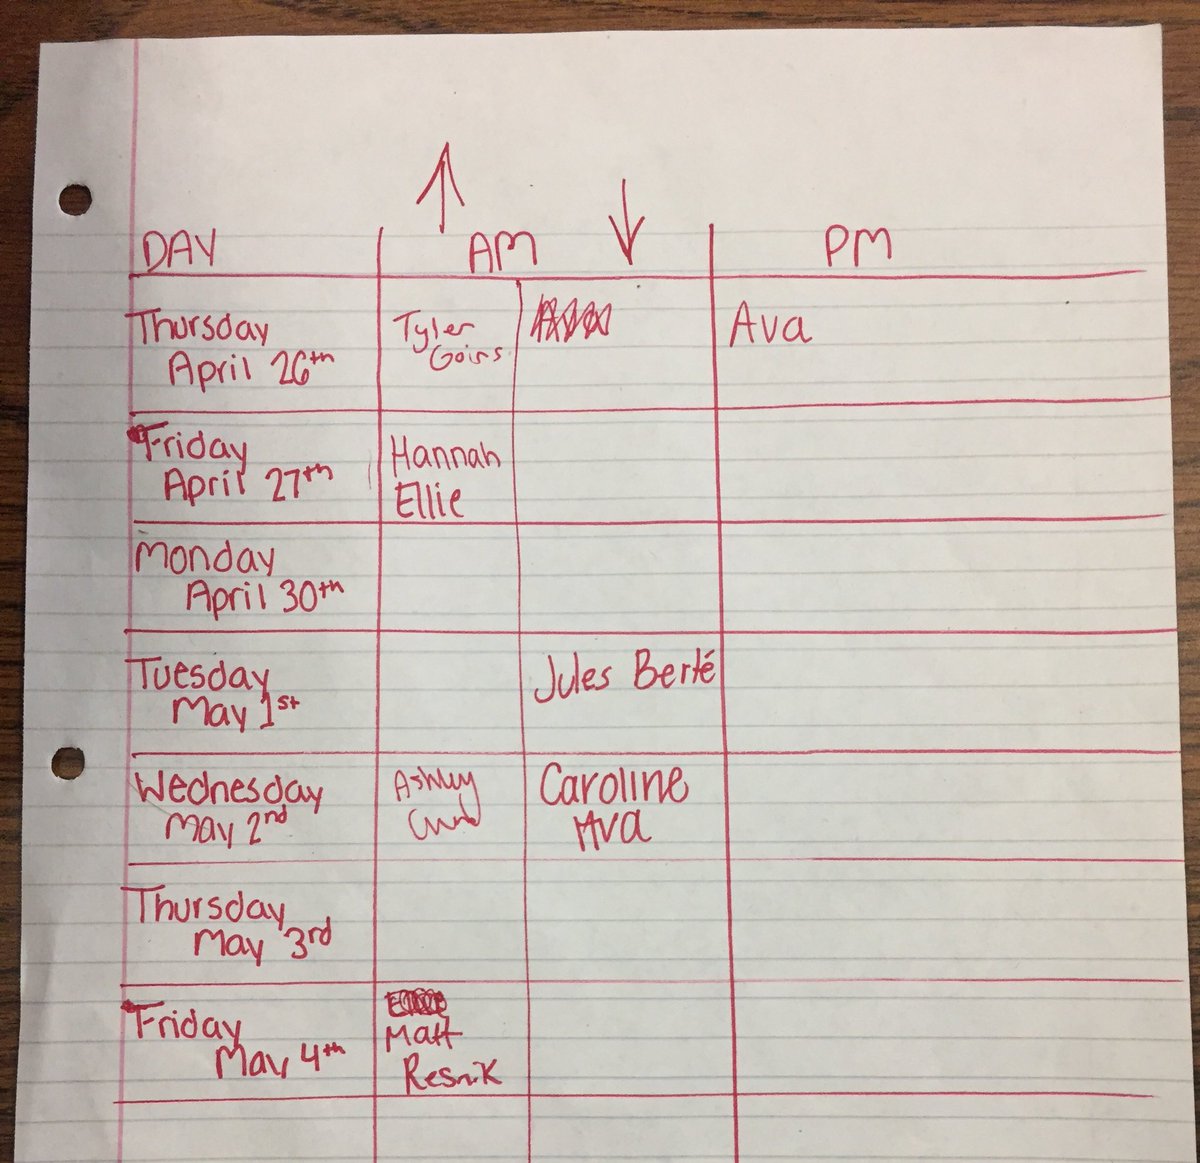 DAY AM PM
Thursday Tyler Ava
April 26th Goins
Friday Hannah
April 27th Ellie
Monday
April 30th
Tuesday Jules Berté
May 1st
Wednesday Ashley Caroline
May 2nd Ava
Thursday
May 3rd
Friday Matt
May 4th Resnik